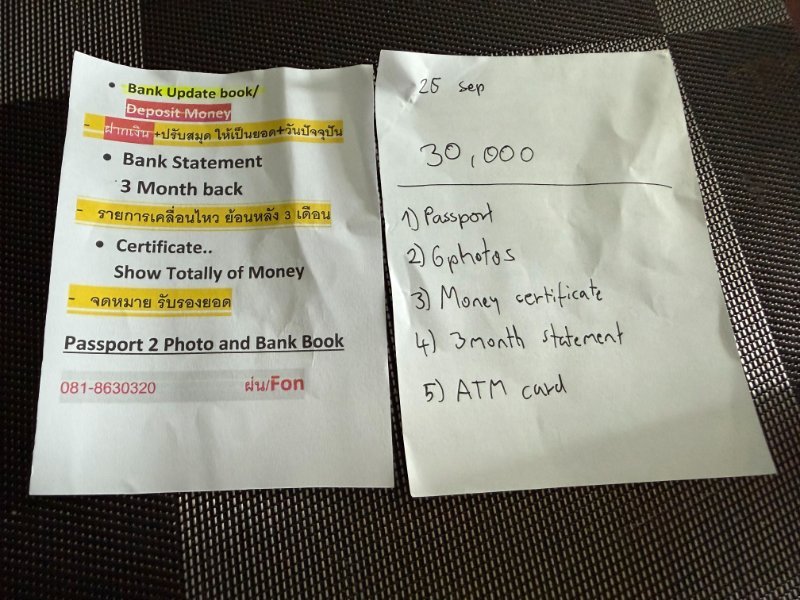 • Bank Update book/
Deposit Money
- ฝากเงิน +ปรับสมุด ให้เป็นยอด+วันปัจจุปัน
• Bank Statement
3 Month back
- รายการเคลื่อนไหว ย้อนหลัง 3 เดือน
• Certificate..
Show Totally of Money
- จดหมาย รับรองยอด
Passport 2 Photo and Bank Book
081-8630320 ฝน/Fon
25 sep
30,000
1) Passport
2) 6 photos
3) Money certificate
4) 3 month statement
5) ATM card